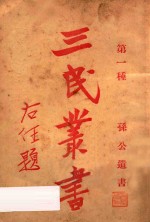 第一種 孫公遺書
三民叢書
右任題